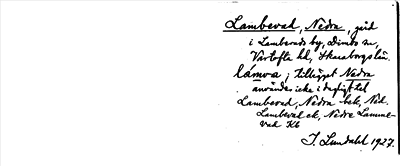 Lambevad, Nedra, gård
i Lamberads by, Dimbo sn,
Vartofta hd, Skaraborgs län.
lámva; tillägget Nedra
användes icke i dagligt tal
Lambevad, Nedra bek. Ned.
Lambevad ek, Nedre Lamme-
vad Kb
J. Lundahl 1927.